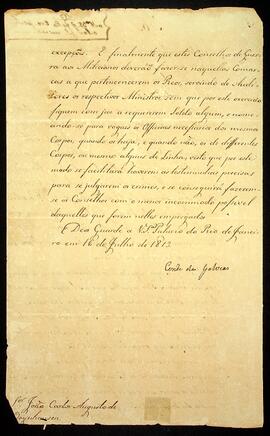 excepção. E finalmente que estes Conselhos de Guerra
aos Milicianos deverão fazer-se naquellas Comar
cas a que pertencerem os Reos, servindo de Audi
tores os respectivos Ministros sem que por este exercicio
fiquem com jus a requererem Soldo algum, e nomean
do-se para vogaes os Officiaes necessarios dos mesmos
Corpos, quando os haja, e quando não, os de differentes
Corpos, ou mesmo alguns de Linha, visto que por este
modo se facilitará haverem as testimunhas precisas
para se julgarem os crimes, e se conseguirá fazerem
se os Conselhos com o menor incommodo possivel
daquelles que forem nelles empregados.
Deos Guarde a V.S. Palacio do Rio de Janei
ro em 16 de Julho de 1813.
Conde das Galveas
Snr. João Carlos Augusto de
Oeynhausen